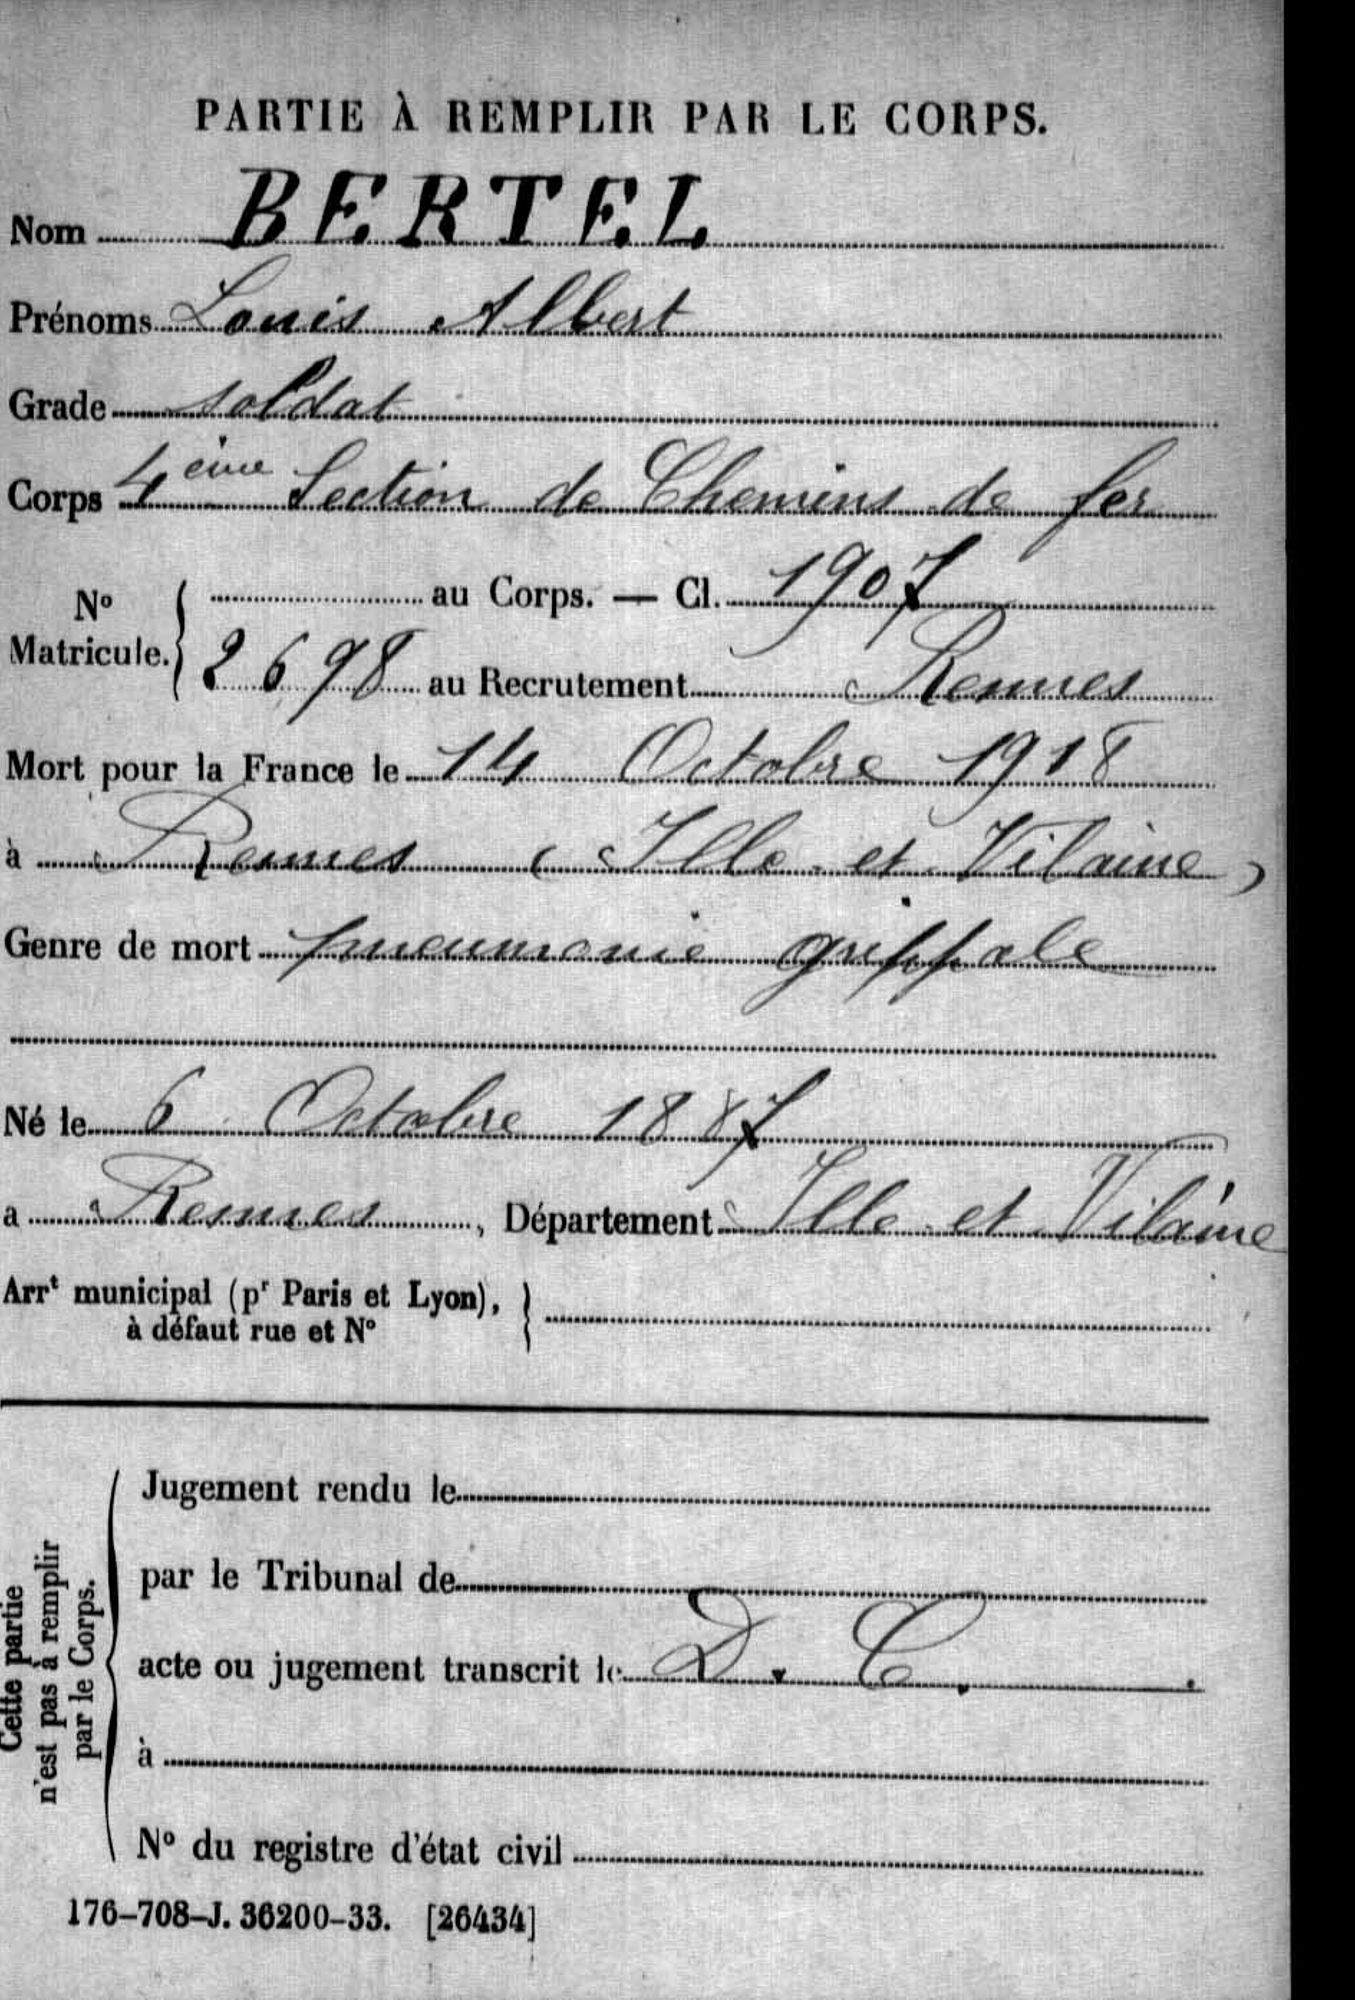 PARTIE À REMPLIR PAR LE CORPS.
Nom BERTEL
Prénoms Louis Albert
Grade soldat
Corps 4ème Section de Chemins de fer
N° Matricule. { au Corps. — Cl. 1907
2698 au Recrutement Rennes
Mort pour la France le 14 Octobre 1918
à Rennes (Ille et Vilaine)
Genre de mort pneumonie grippale
Né le 6 Octobre 1887
à Rennes, Département Ille et Vilaine
Arrt municipal (pr Paris et Lyon), }
à défaut rue et N°
Cette partie
n'est pas à remplir
par le Corps.
Jugement rendu le
par le Tribunal de
acte ou jugement transcrit le D. C.
à
N° du registre d'état civil
176-708-J. 36200-33. [26434]